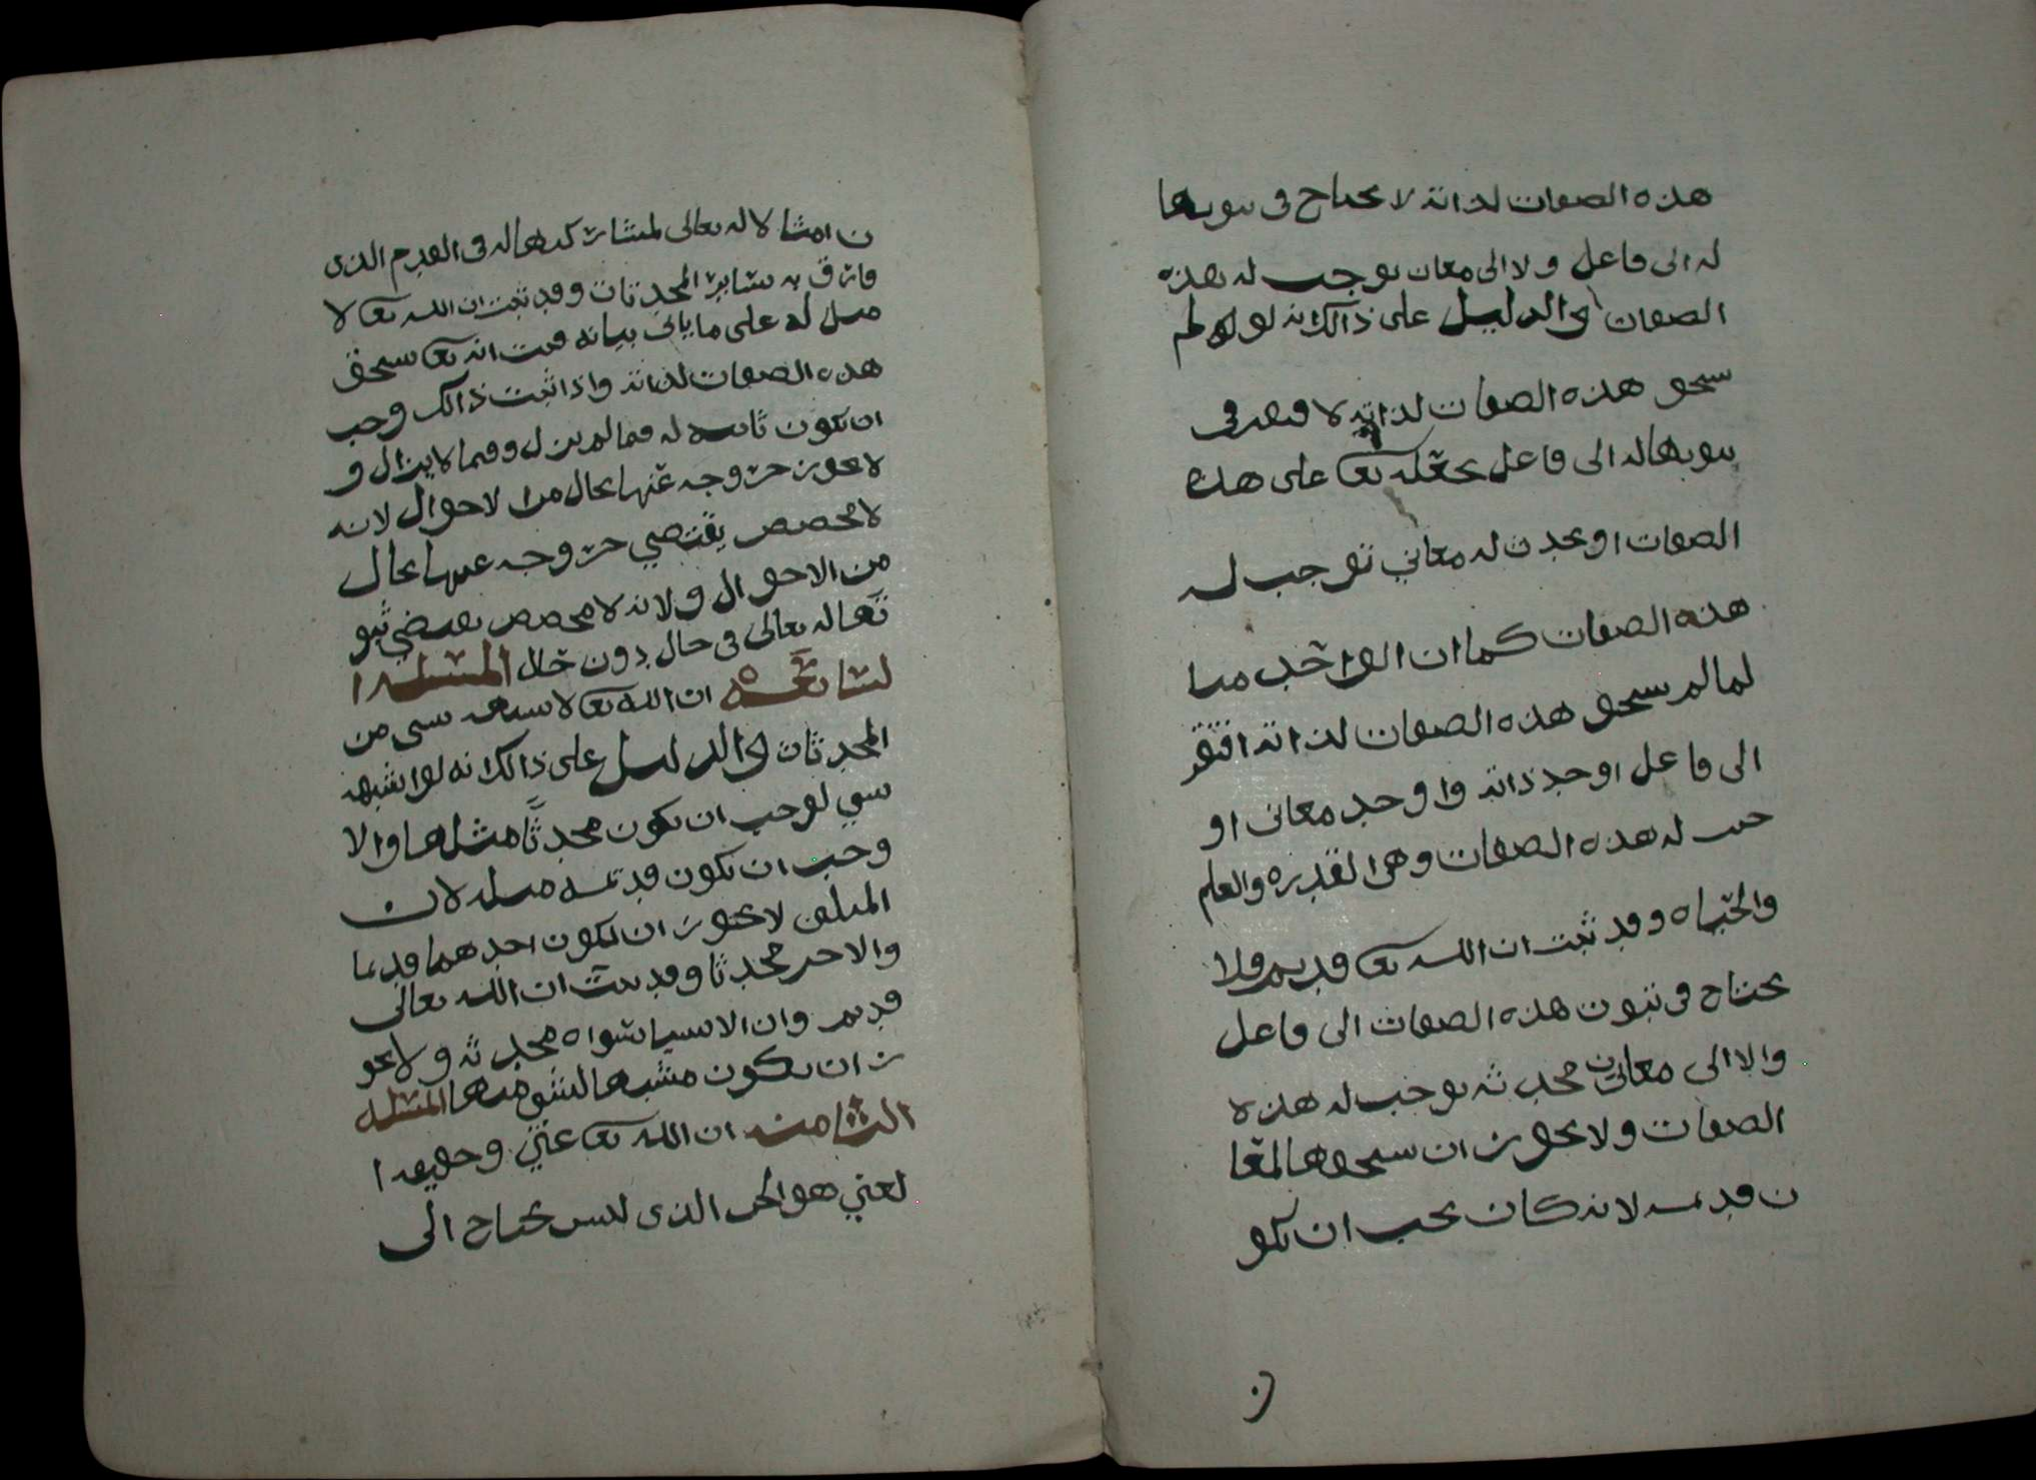 هذه الصفات لذاته لا يحتاج في ثبوتها
له الى فاعل ولا الى معان توجب له هذه
الصفات والدليل على ذالك انه لو لم
يستحق هذه الصفات لذاته لافتقر في
ثبوتها له الى فاعل يجعله تعا على هذه
الصفات او يحدث له معاني توجب له
هذه الصفات كما ان الواحد منا
لما لم يستحق هذه الصفات لذاته افتقر
الى فاعل اوجد ذاته واوجد معانى او
جبت له هذه الصفات وهي القدرة والعلم
والحياه وقد ثبت ان الله تعا قديم فلا
يحتاج في ثبوت هذه الصفات الى فاعل
والا الى معاني محدثه توجب له هذه
الصفات ولا يجوز ان يستحقها لمعا
ن قديمه لانه كان يجب ان تكو
ن
ن امثالا له تعالى لمشاركتها له في القدم الذى
فارق به سائر المحدثات وقد ثبت ان الله تعا لا
مثل له على ما ياتي بيانه فثبت انه تعا يستحق
هذه الصفات لذاته واذا ثبت ذالك وجب
ان تكون ثابته له فيما لم يزل وفيما لا يزال و
لا يجوز خروجه عنها بحال من الاحوال لانه
لا مخصص يقتضي خروجه عنها بحال
من الاحوال ولانه لا مخصص يقتضي ثبو
تها له تعالى في حال دون حال المسئله ا
لسابعه ان الله تعا لا يشبهه شي من
المحدثات والدليل على ذالك انه لو اشبهه
شي لوجب ان يكون محدثا مثلها والا
وجب ان تكون قديمه مثله لان
المثلين لا يجوز ان يكون احدهما قديما
والاخر محدثا وقد ثبت ان الله تعالى
قديم وان الاشيا سواه محدثه ولا يجو
ز ان يكون مشبها لشي منها المسئله
الثامنه ان الله تعا غني وحقيقه ا
لغني هو الحي الذى ليس يحتاج الى